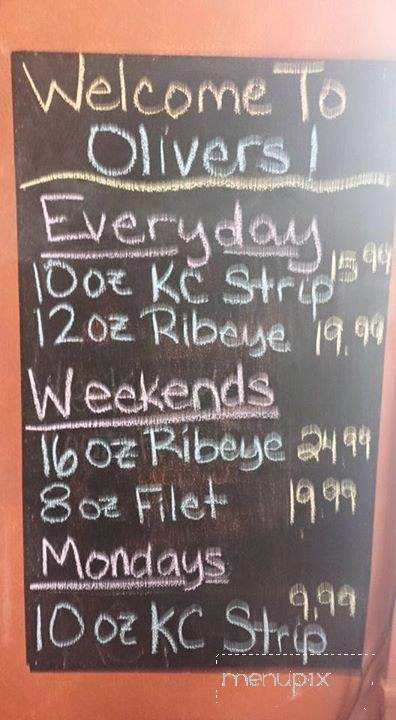 Welcome To
Olivers!
Everyday
10oz KC Strip 15.99
12oz Ribeye 19.99
Weekends
16oz Ribeye 24.99
8oz Filet 19.99
Mondays
10oz KC Strip 9.99
menupix